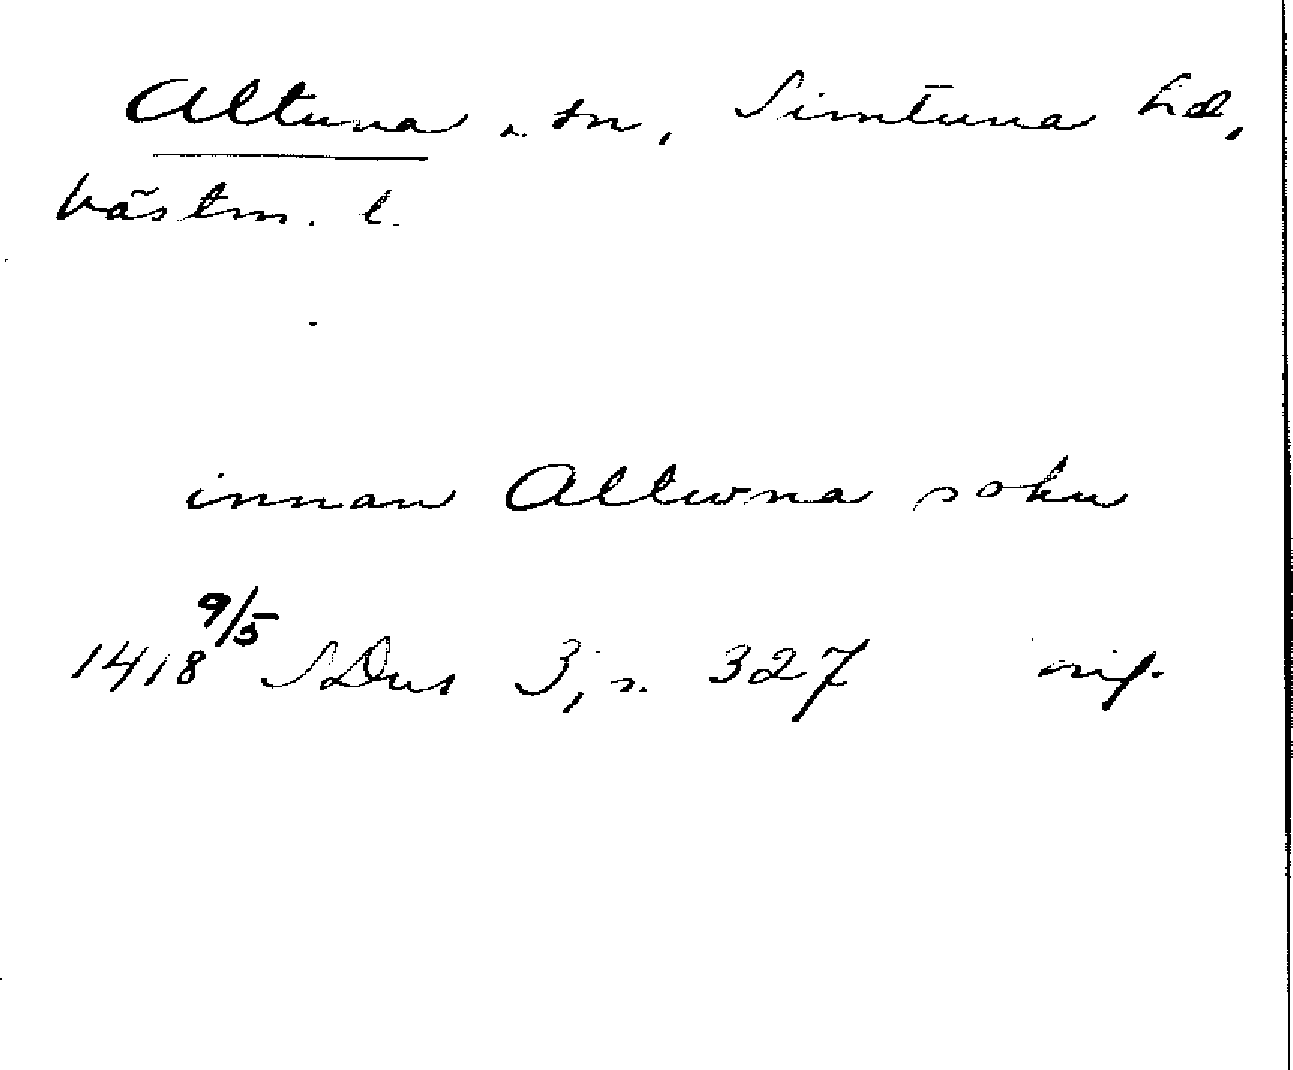 Altuna sn, Simtuna hd,
Västm. l.
innan Altwna sokn
1418 9/5 SDns 3, s. 327 orig.